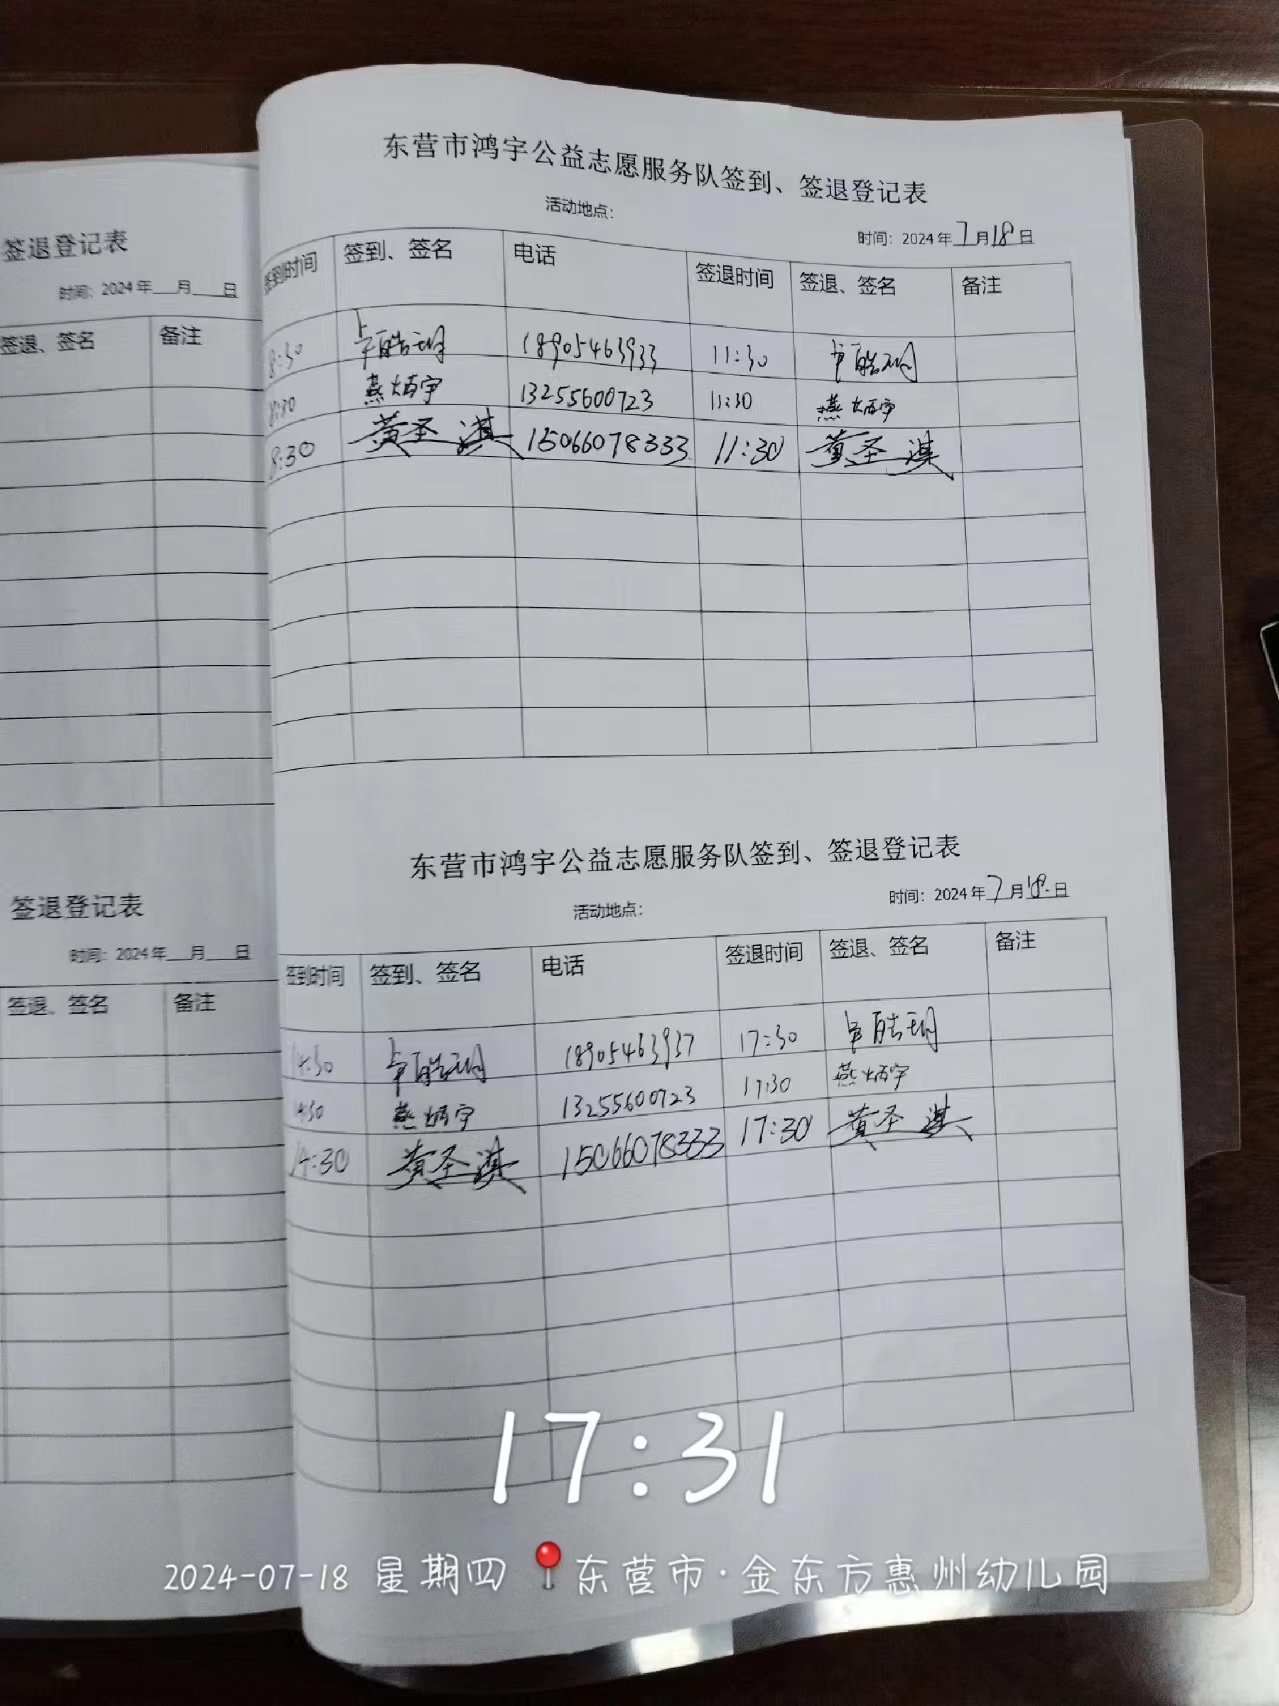 签退登记表
时间：2024年___月___日
签退、签名 备注
签退登记表
时间：2024年___月___日
签退、签名 备注
东营市鸿宇公益志愿服务队签到、签退登记表
活动地点：
时间：2024年7月18日
签到时间 签到、签名 电话 签退时间 签退、签名 备注
8:30 11:30
8:30 燕炳宇 13255600723 11:30 燕炳宇
8:30 黄圣淇 15066078333 11:30 黄圣淇
东营市鸿宇公益志愿服务队签到、签退登记表
活动地点：
时间：2024年7月18日
签到时间 签到、签名 电话 签退时间 签退、签名 备注
14:30 18905463937 17:30
14:30 燕炳宇 13255600723 17:30 燕炳宇
14:30 黄圣淇 15066078333 17:30 黄圣淇
17:31
2024-07-18 星期四 东营市·金东方惠州幼儿园